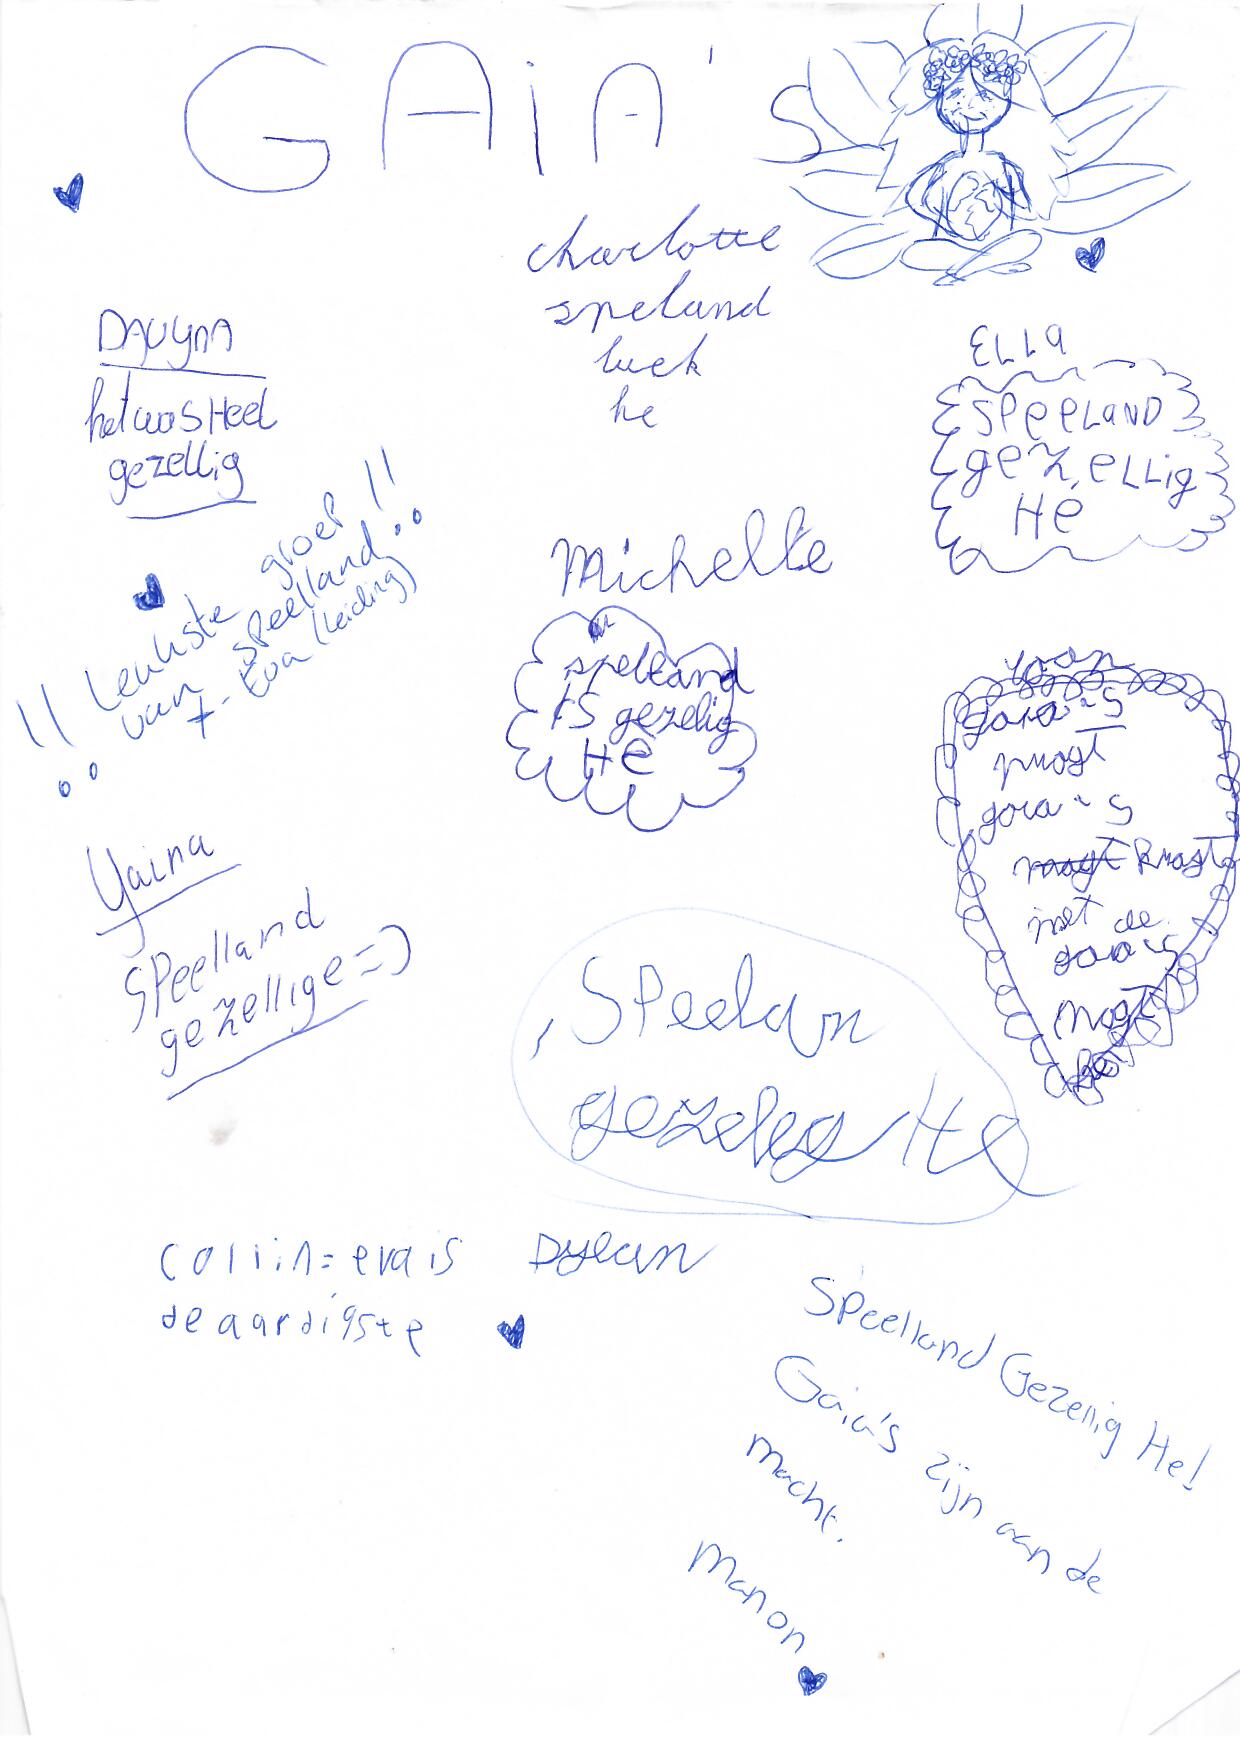 GAiA's
charlotte
speland
luek
he
DAVYNA
het was Heel
gezellig
ELLA
SPeeLAND
gezeLLig
HÉ
!! Leukste groep !!
van speelland
x - Eva (leiding)
Michelle
spelland
is gezelig
HE
gaia's
magt
gaia's
met de
gaia's
magt
Yaina
SPeelland
gezellige =)
Speelan
gezeleg He
Collin = eva is
de aardigste
Dylan
SPeelland Gezellig He!
Gaia's zijn aan de
macht.
Manon